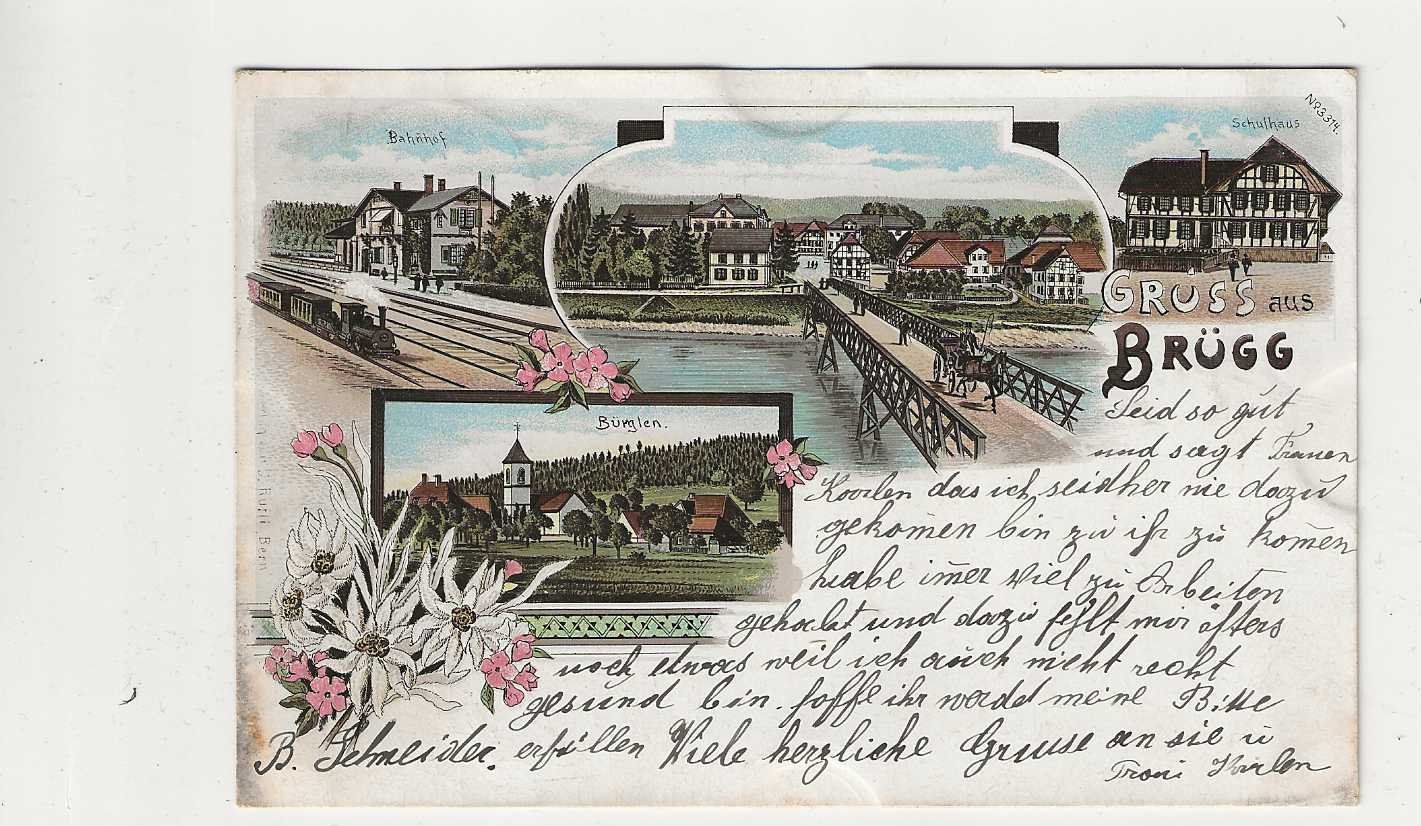 Bahnhof
Schulhaus
No. 3374.
GRUSS aus
BRÜGG
Bürglen.
Seid so gut
und sagt Frauen
das ich seidher nie dazu
gekom̄en bin zu ihr zu kom̄en
habe im̄er Viel zu Arbeiten
gehabt und dazu fehlt mir öfters
noch etwas weil ich auch nicht recht
gesund bin. hoffe ihr werdet meine Bitte
B. Schneider. erfüllen Viele herzliche Grüsse an sie ü
Bern